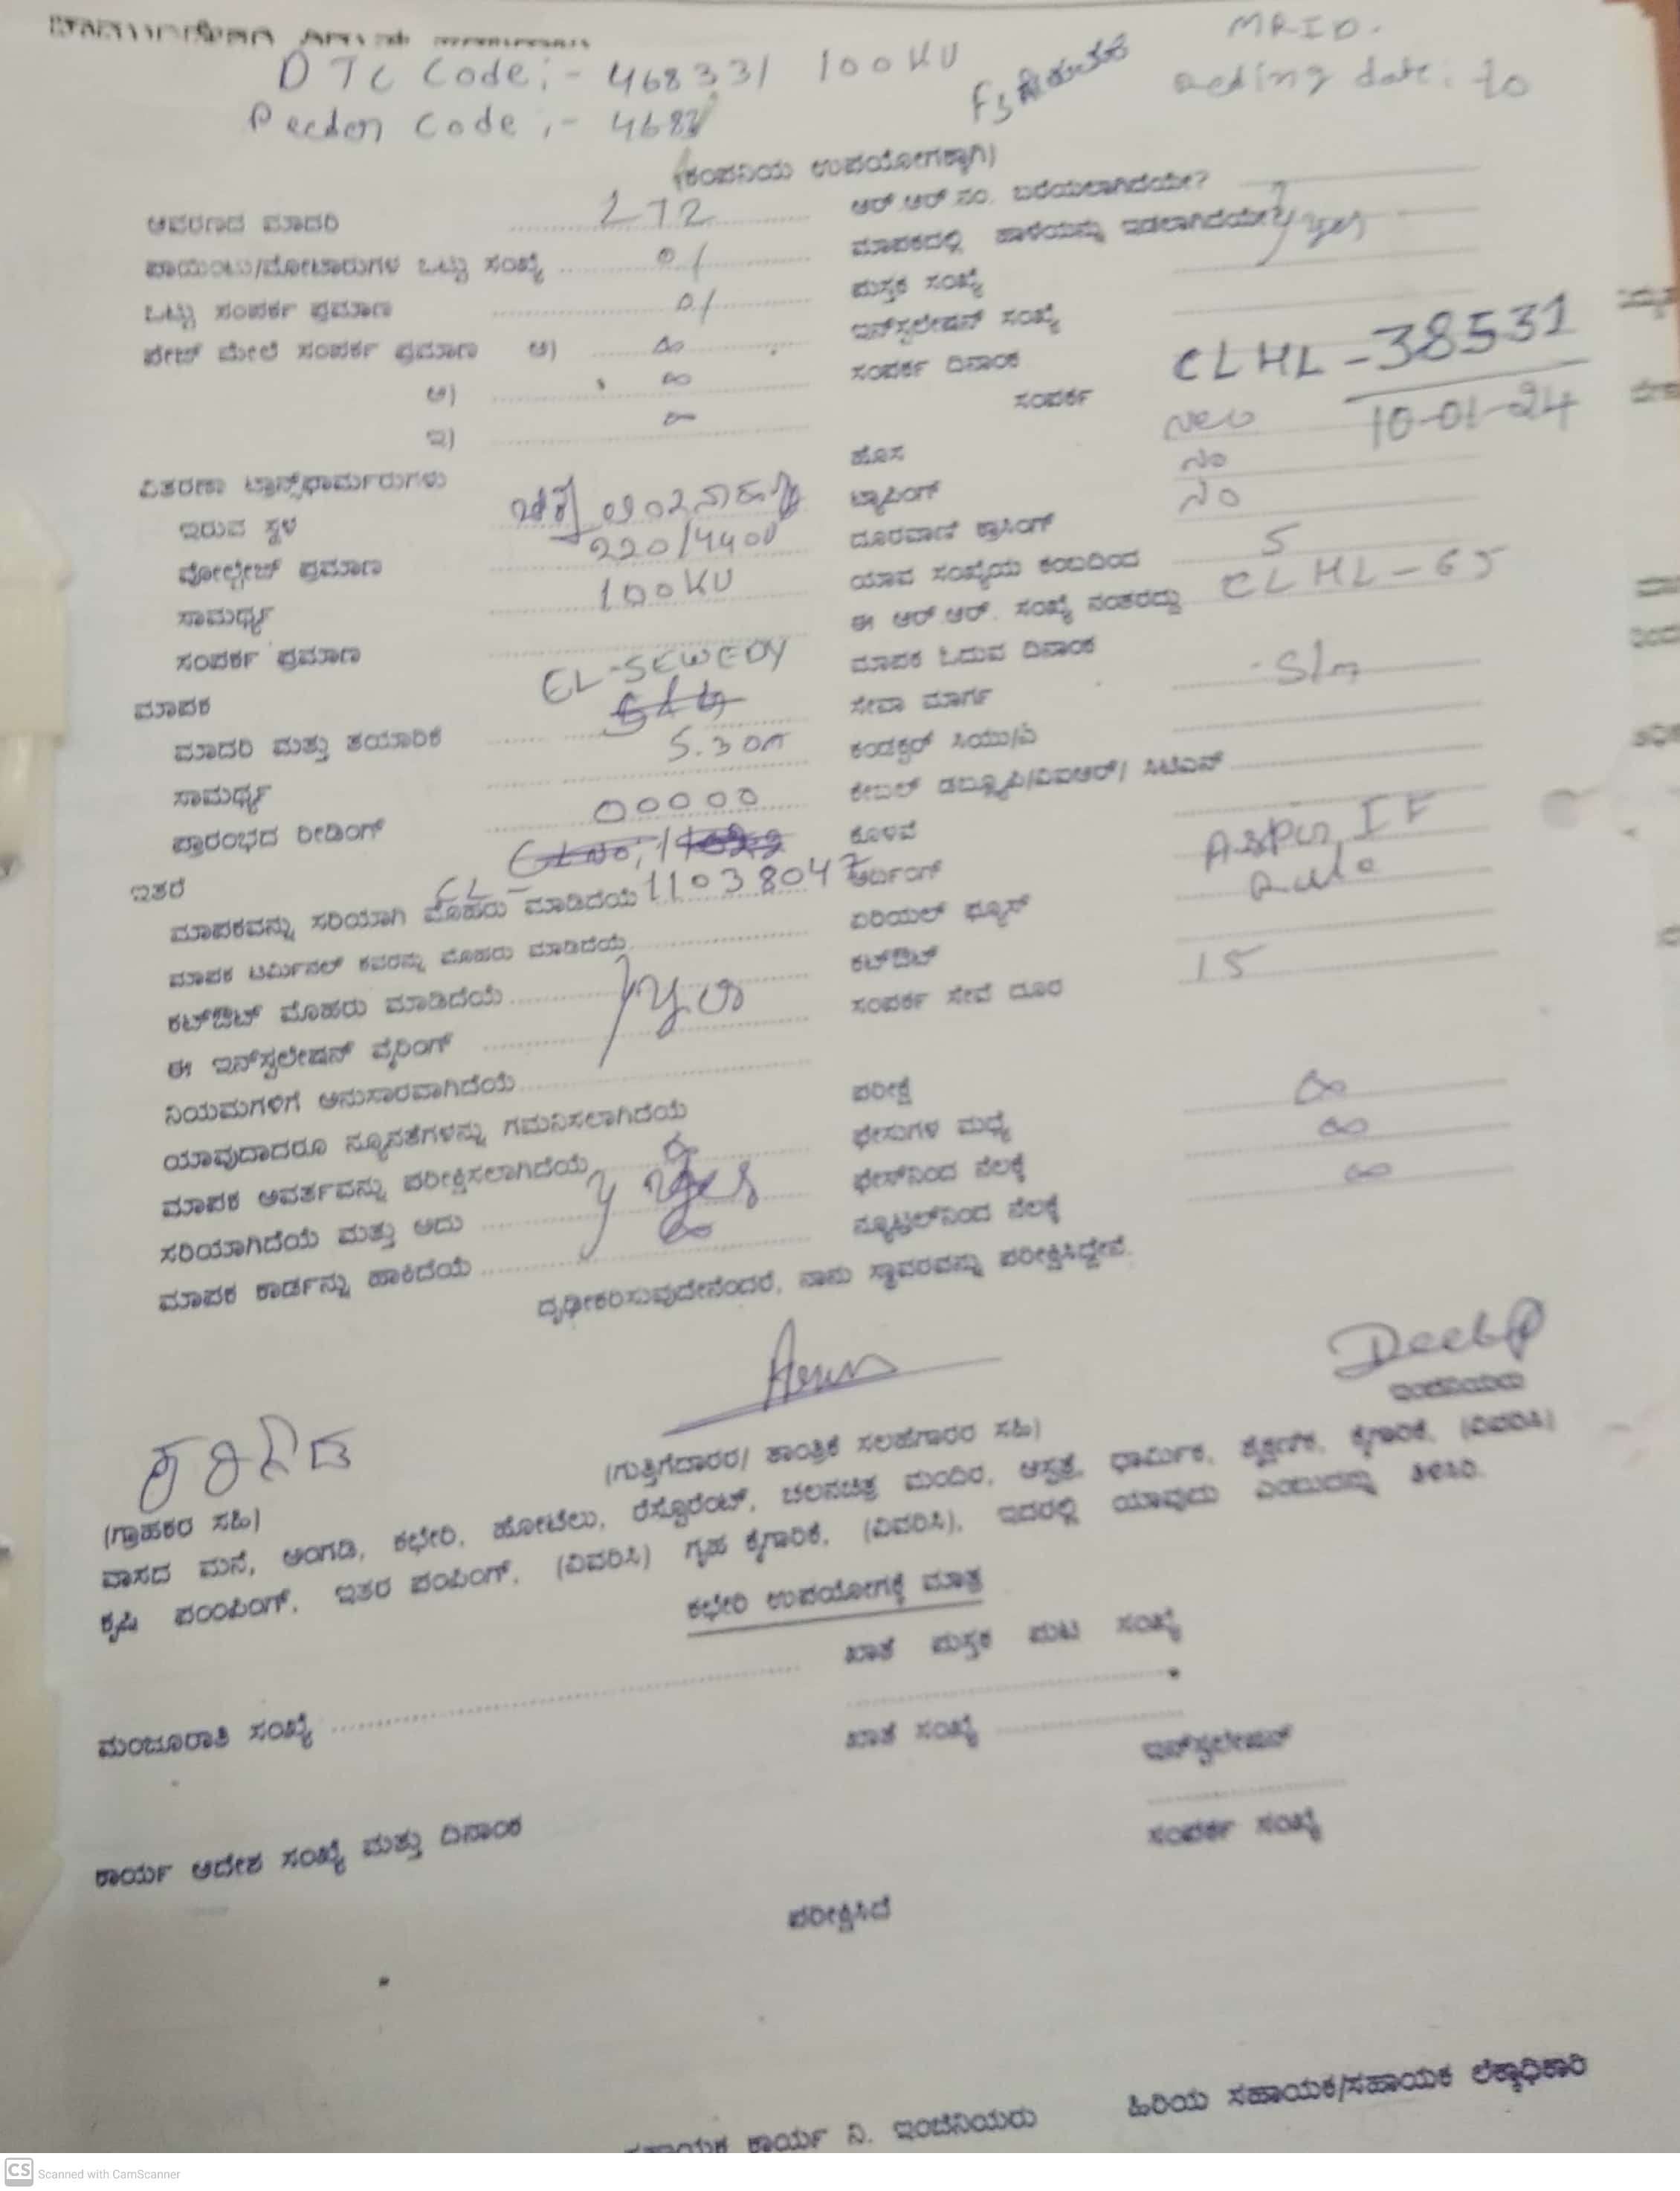 DTC Code:- 468331 100KV
MRID.
Reeding date: 10
Feeder Code:- 468
(ಕಂಪನಿಯ ಉಪಯೋಗಕ್ಕಾಗಿ)
ಆವರಣದ ಮಾದರಿ LT2
ಆರ್.ಆರ್.ನಂ. ಬರೆಯಲಾಗಿದೆಯೇ?
ಪಾಯಿಂಟು/ಮೋಟಾರುಗಳ ಒಟ್ಟು ಸಂಖ್ಯೆ 01
ಮಾಪಕದಲ್ಲಿ ಹಾಳೆಯನ್ನು ಇಡಲಾಗಿದೆಯೇ? yes
ಒಟ್ಟು ಸಂಪರ್ಕ ಪ್ರಮಾಣ 01
ಪುಸ್ತಕ ಸಂಖ್ಯೆ
ಪೇಜ್ ಮೇಲೆ ಸಂಪರ್ಕ ಪ್ರಮಾಣ ಅ) ∞
ಇನ್‌ಸ್ಟಲೇಷನ್ ಸಂಖ್ಯೆ
ಆ) ∞
ಸಂಪರ್ಕ ದಿನಾಂಕ CLHL-38531
ಇ)
ಸಂಪರ್ಕ New 10-01-24
ವಿತರಣಾ ಟ್ರಾನ್ಸ್‌ಫಾರ್ಮರುಗಳು
ಹೊಸ No
ಇರುವ ಸ್ಥಳ
ಟ್ಯಾಪಿಂಗ್ No
ವೋಲ್ಟೇಜ್ ಪ್ರಮಾಣ 220/440V
ದೂರವಾಣಿ ಕ್ರಾಸಿಂಗ್
ಸಾಮರ್ಥ್ಯ 100KV
ಯಾವ ಸಂಖ್ಯೆಯ ಕಂಬದಿಂದ 5
ಸಂಪರ್ಕ ಪ್ರಮಾಣ
ಈ ಆರ್.ಆರ್. ಸಂಖ್ಯೆ ನಂತರದ್ದು CLHL-65
ಮಾಪಕ EL-SEWEDY
ಮಾಪಕ ಓದುವ ದಿನಾಂಕ
ಮಾದರಿ ಮತ್ತು ತಯಾರಿಕೆ
ಸೇವಾ ಮಾರ್ಗ
ಸಾಮರ್ಥ್ಯ 5.30A
ಕಂಡಕ್ಟರ್ ಸಿಯು/ಎ
ಪ್ರಾರಂಭದ ರೀಡಿಂಗ್ 00000
ಕೇಬಲ್ ಡಬ್ಲ್ಯೂಪಿ/ವಿಐಆರ್/ ಸಿಟಿಎನ್
ಇತರೆ
ಕೊಳವೆ
ಮಾಪಕವನ್ನು ಸರಿಯಾಗಿ ಮೊಹರು ಮಾಡಿದೆಯೆ EL- 11038047
ಅರ್ದಿಂಗ್ Asper IE Rule
ಮಾಪಕ ಟರ್ಮಿನಲ್ ಕವರನ್ನು ಮೊಹರು ಮಾಡಿದೆಯೆ
ಏರಿಯಲ್ ಫ್ಯೂಸ್
ಕಟ್‌ಔಟ್ ಮೊಹರು ಮಾಡಿದೆಯೆ yes
ಕಟ್‌ಔಟ್
ಈ ಇನ್‌ಸ್ಟಲೇಷನ್ ವೈರಿಂಗ್
ಸಂಪರ್ಕ ಸೇವೆ ದೂರ 15
ನಿಯಮಗಳಿಗೆ ಅನುಸಾರವಾಗಿದೆಯೆ
ಯಾವುದಾದರೂ ನ್ಯೂನತೆಗಳನ್ನು ಗಮನಿಸಲಾಗಿದೆಯೆ
ಪರೀಕ್ಷೆ ∞
ಮಾಪಕ ಆವರ್ತವನ್ನು ಪರೀಕ್ಷಿಸಲಾಗಿದೆಯೆ
ಫೇಸುಗಳ ಮಧ್ಯೆ ∞
ಸರಿಯಾಗಿದೆಯೆ ಮತ್ತು ಅದು yes
ಫೇಸ್‌ನಿಂದ ನೆಲಕ್ಕೆ ∞
ಮಾಪಕ ಕಾರ್ಡನ್ನು ಹಾಕಿದೆಯೆ
ನ್ಯೂಟ್ರಲ್‌ನಿಂದ ನೆಲಕ್ಕೆ
ದೃಢೀಕರಿಸುವುದೇನೆಂದರೆ, ನಾನು ಸ್ಥಾವರವನ್ನು ಪರೀಕ್ಷಿಸಿದ್ದೇನೆ.
ಇಂಜಿನಿಯರು
(ಗುತ್ತಿಗೆದಾರರ/ ತಾಂತ್ರಿಕ ಸಲಹೆಗಾರರ ಸಹಿ)
(ಗ್ರಾಹಕರ ಸಹಿ)
ವಾಸದ ಮನೆ, ಅಂಗಡಿ, ಕಛೇರಿ, ಹೋಟೆಲು, ರೆಸ್ಟೊರೆಂಟ್, ಚಲನಚಿತ್ರ ಮಂದಿರ, ಆಸ್ಪತ್ರೆ, ಧಾರ್ಮಿಕ, ಶೈಕ್ಷಣಿಕ, ಕೈಗಾರಿಕೆ, (ವಿವರಿಸಿ)
ಕೃಷಿ ಪಂಂಪಿಂಗ್, ಇತರ ಪಂಪಿಂಗ್, (ವಿವರಿಸಿ) ಗೃಹ ಕೈಗಾರಿಕೆ, (ವಿವರಿಸಿ), ಇದರಲ್ಲಿ ಯಾವುದು ಎಂಬುದನ್ನು ತಿಳಿಸಿರಿ.
ಕಛೇರಿ ಉಪಯೋಗಕ್ಕೆ ಮಾತ್ರ
ಖಾತೆ ಪುಸ್ತಕ ಪುಟ ಸಂಖ್ಯೆ
ಮಂಜೂರಾತಿ ಸಂಖ್ಯೆ
ಖಾತೆ ಸಂಖ್ಯೆ
ಇನ್‌ಸ್ಟಲೇಷನ್
ಕಾರ್ಯ ಆದೇಶ ಸಂಖ್ಯೆ ಮತ್ತು ದಿನಾಂಕ
ಸಂಪರ್ಕ ಸಂಖ್ಯೆ
ಪರೀಕ್ಷಿಸಿದೆ
ಸಹಾಯಕ ಕಾರ್ಯ ನಿ. ಇಂಜಿನಿಯರು
ಹಿರಿಯ ಸಹಾಯಕ/ಸಹಾಯಕ ಲೆಕ್ಕಾಧಿಕಾರಿ
CS Scanned with CamScanner